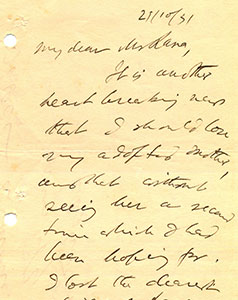 21/10/31
My dear Mr Rana,
It is another
heart breaking news
that I should lose
my adopted mother,
and that without
seeing her a second
time which I had
been hoping for.
I lost the dearest